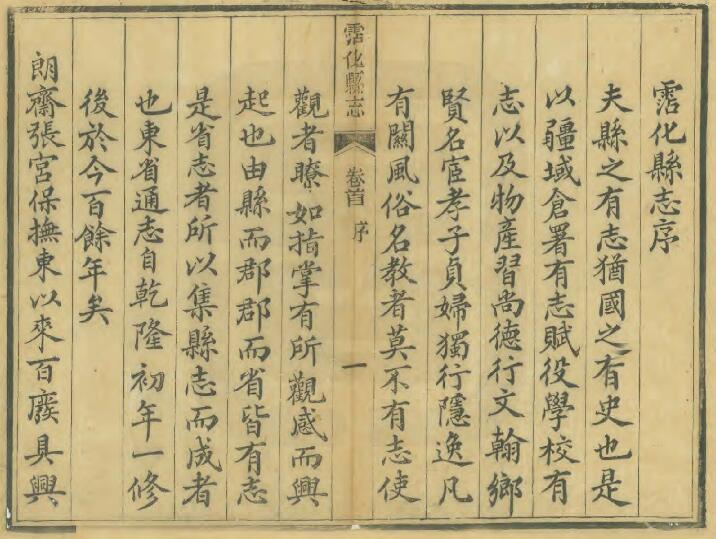 霑化縣志序
夫縣之有志猶國之有史也是
以疆域倉署有志賦役學校有
志以及物產習尚德行文翰鄉
賢名宦孝子貞婦獨行隱逸凡
有關風俗名教者莫不有志使
霑化縣志
卷首
序
一
觀者瞭如指掌有所觀感而興
起也由縣而郡郡而省皆有志
是省志者所以集縣志而成者
也東省通志自乾隆初年一修
後於今百餘年矣
朗齋張宮保撫東以來百廢具興